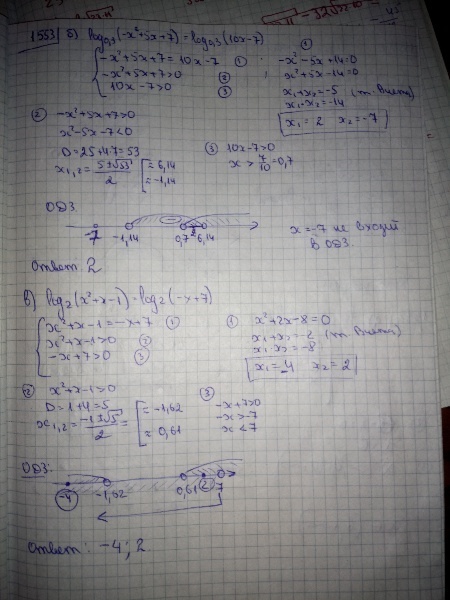 1553 б) log₀,₃(-x²+5x+7)=log₀,₃(10x-7)
-x²+5x+7=10x-7 ①
-x²+5x+7>0 ②
10x-7>0 ③
①
-x²-5x+14=0
x²+5x-14=0
x₁+x₂=-5 (т. Виета)
x₁·x₂=-14
x₁=2 x₂=-7
② -x²+5x+7>0
x²-5x-7<0
D=25+4·7=53
x₁,₂=5±√53/2 [≈6,14 ≈-1,14
③ 10x-7>0
x>7/10=0,7
ОДЗ.
-7 -1,14 0,7 2 6,14
x=-7 не входит
в ОДЗ.
Ответ: 2
в) log₂(x²+x-1)=log₂(-x+7)
x²+x-1=-x+7 ①
x²+x-1>0 ②
-x+7>0 ③
① x²+2x-8=0
x₁+x₂=-2 (т. Виета)
x₁·x₂=-8
x₁=-4 x₂=2
② x²+x-1>0
D=1+4=5
x₁,₂=-1±√5/2=[≈-1,62 ≈0,61
③
-x+7>0
-x>-7
x<7
ОДЗ.
-4 -1,62 0,61 2 7
Ответ: -4; 2.